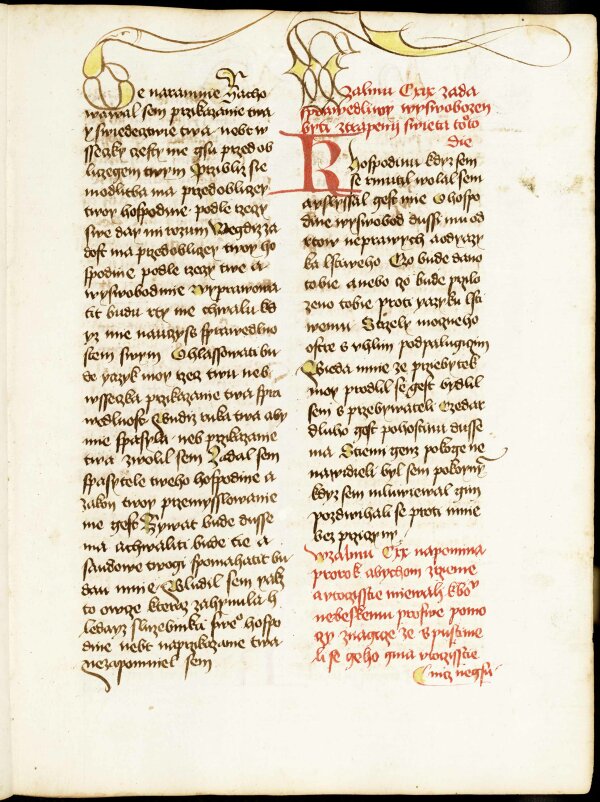 Oe naramnie Zacho
wawal sem przikazanie twa
y swiedeczwie twa nebt w
sseczky czesty me gsu przed ob
liczegem twym Przibliz sie
modlitba ma przed obliczey
twoy hospodine podle rzeczy
swe day mi rozum Wegdiz za
dost ma przed obliczey twoy ho
spodine podle rzeczy twe a
wyswobod mie Vyprawowa
tie budu rty me chwalu kd
yz mie nauczyss sprawedlno
stem swym Ohlassowati bu
de yazyk moy rzecz twu neb
wssecka przikazanie twa spra
wedlnost Budiz ruka twa aby
mie spasyla neb przikazanie
twa zwolil sem Zadal sem
spasytele tweho hospodine a
zakon twoy przemysslowanie
me gest Zywat bude dusse
ma a chwaliti bude tie a
saudowe twogi spomahatit bu
dau mnie Bludil sem yako
to owcze kteraz zahynula h
leday sluzebnika sweho hospo
dine nebt naprzikazanie twa
nezapomniel sem
Wzalmu Cxix zada
sprawedliwy wyswobozen
byti ztrapenij swieta toto
die
K hospodinu kdyz sem
se rmutil wolal sem
a uslyssal gest mie Ohospo
dine wyswobod dussi mu od
rtow neprawych a od yazy
ka lstiweho Czo bude dano
tobie a nebo czo bude przilo
zeno tobie proti yazyku lsti
wemu Strzely moczneho
ostre s vhlim podpalugiczim
Bieda mnie ze przebytek
moy prodlil se gest bydlil
sem s przebywateli Cedar
dluho gest pohostinu dusse
ma Stiemi genz pokoge ne
nawidieli byl sem pokorny
kdyz sem mluwiewal gim
pozdwihali se proti mnie
bez przicziny
Wzalmu Cxx napomina
prorok abychom zrzenie
a vtocziscie miewali k bohu
nebeskemu prosiwe pomo
czy znagicze ze opustime
li se geho gina vtocziscie
nicz negsu